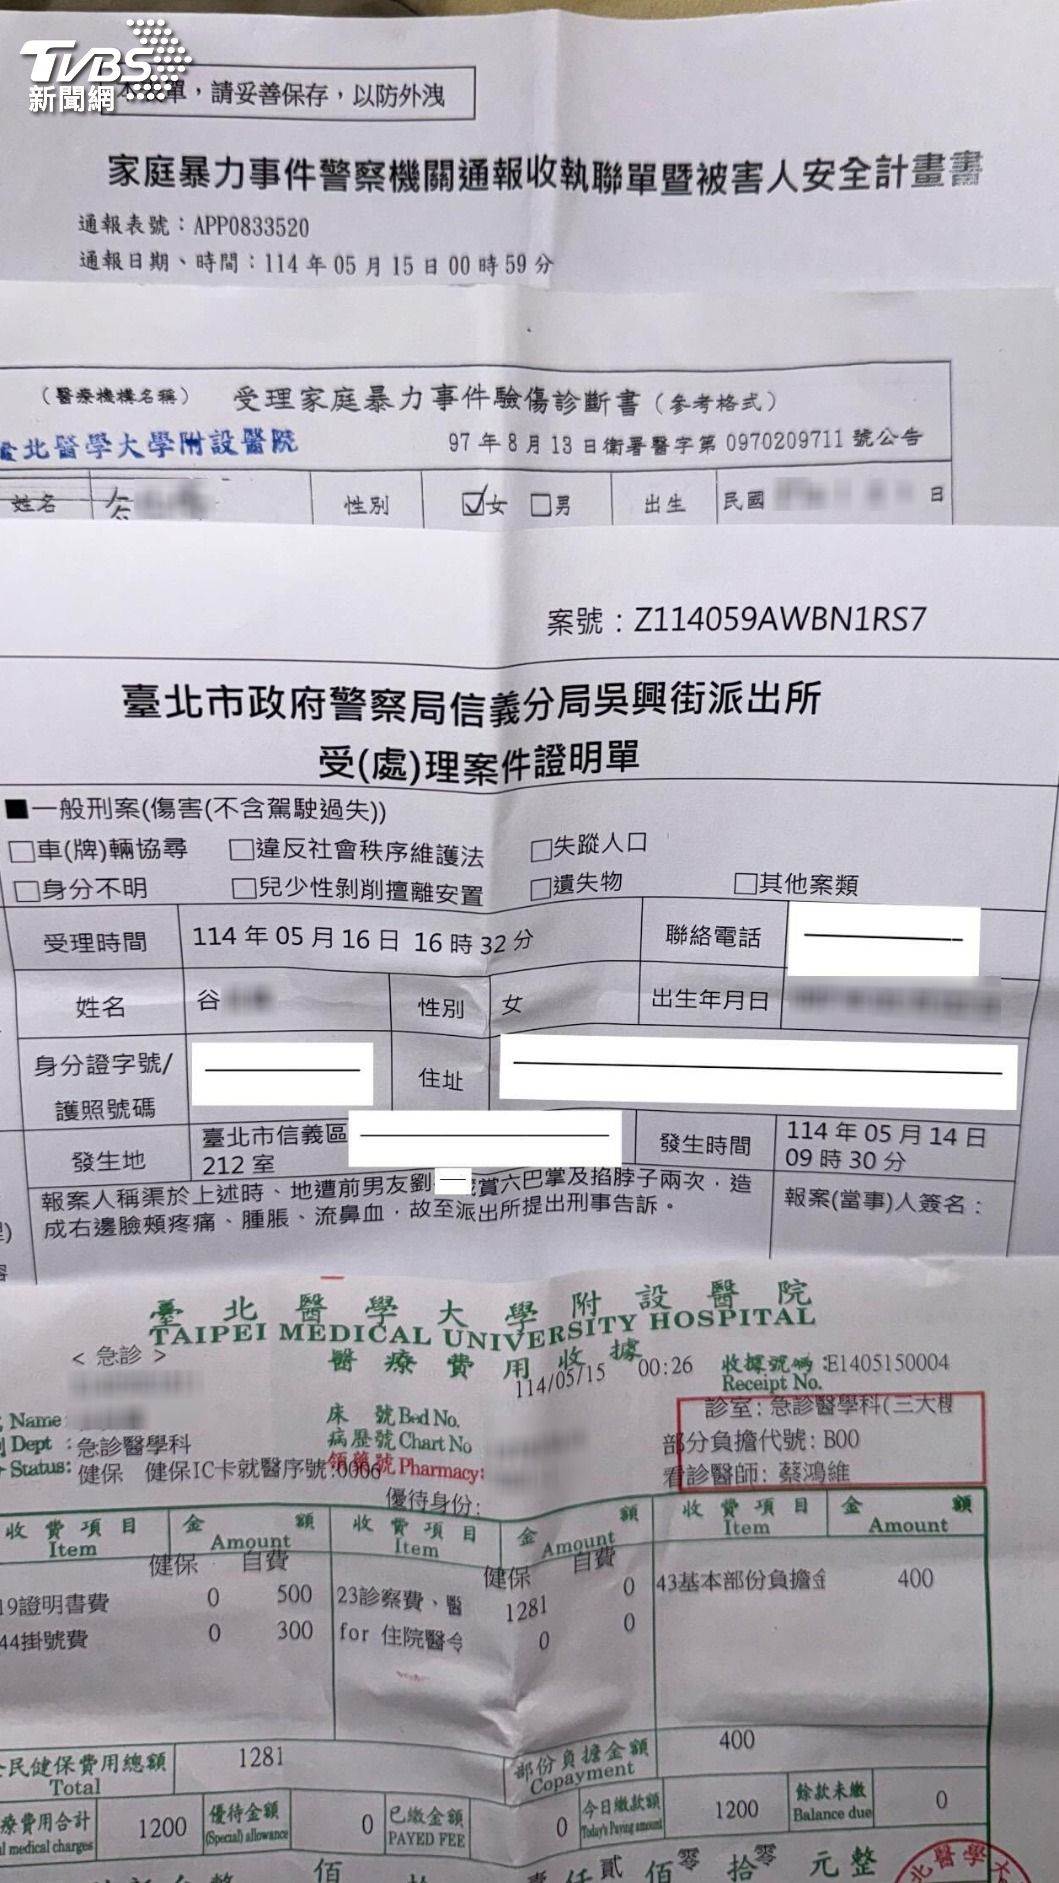 TVBS
新聞網
單，請妥善保存，以防外洩
家庭暴力事件警察機關通報收執聯單暨被害人安全計畫書
通報表號：APP0833520
通報日期、時間：114 年 05 月 15 日 00 時 59 分
（醫療機構名稱） 受理家庭暴力事件驗傷診斷書（參考格式）
北醫學大學附設醫院 97 年 8 月 13 日衛署醫字第 0970209711 號公告
姓名 谷 性別 ☑女 □男 出生 民國 日
案號：Z114059AWBN1RS7
臺北市政府警察局信義分局吳興街派出所
受(處)理案件證明單
■一般刑案(傷害(不含駕駛過失))
□車(牌)輛協尋 □違反社會秩序維護法 □失蹤人口
□身分不明 □兒少性剝削擅離安置 □遺失物 □其他案類
受理時間 114 年 05 月 16 日 16 時 32 分 聯絡電話
姓名 谷 性別 女 出生年月日
身分證字號/ 住址
護照號碼
發生地 臺北市信義區 發生時間 114 年 05 月 14 日
212 室 09 時 30 分
報案人稱渠於上述時、地遭前男友劉 賞六巴掌及掐脖子兩次，造 報案(當事)人簽名：
成右邊臉頰疼痛、腫脹、流鼻血，故至派出所提出刑事告訴。
臺北醫學大學附設醫院
TAIPEI MEDICAL UNIVERSITY HOSPITAL
< 急診 > 醫療費用收據
114/05/15 00:26 收據號碼:E1405150004
Receipt No.
診室: 急診醫學科(三大樓
Name 床 號 Bed No.
部分負擔代號: B00
Dept : 急診醫學科 病歷號 Chart No
看診醫師: 蔡鴻維
Status: 健保 健保IC卡就醫序號:0006 領藥號 Pharmacy:
優待身份:
收費項目 金 額 收費項目 金 額 收費項目 金 額
Item Amount Item Amount Item Amount
健保 自費 健保 自費
19證明書費 0 500 23診察費、醫 1281 0 43基本部份負擔金 400
44掛號費 0 300 for 住院醫令 0 0
民健保費用總額 1281 部份負擔金額 400
Total Copayment
療費用合計 1200 優待金額 0 已繳金額 0 今日繳款額 1200 餘款未繳 0
l medical charges (Special) allowance PAYED FEE Today's Paying amount Balance due
佰 拾 壹仟貳佰零拾零元整
北醫學大